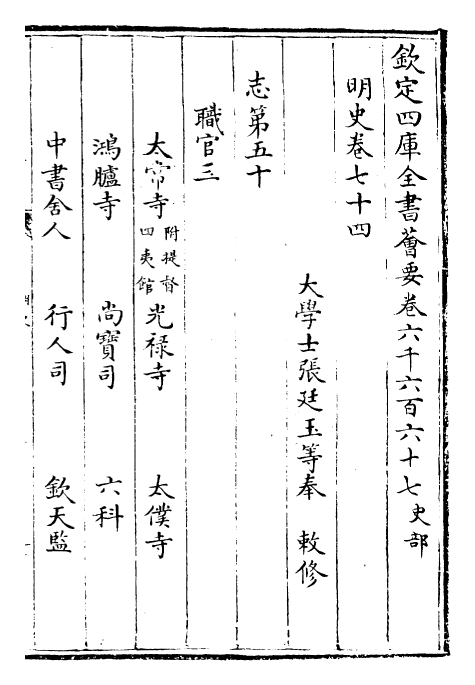 欽定四庫全書薈要卷六千六百六十七史部
明史卷七十四
大學士張廷玉等奉 敕修
志第五十
職官三
太常寺附提督四夷館 光祿寺 太僕寺
鴻臚寺 尚寶司 六科
中書舍人 行人司 欽天監